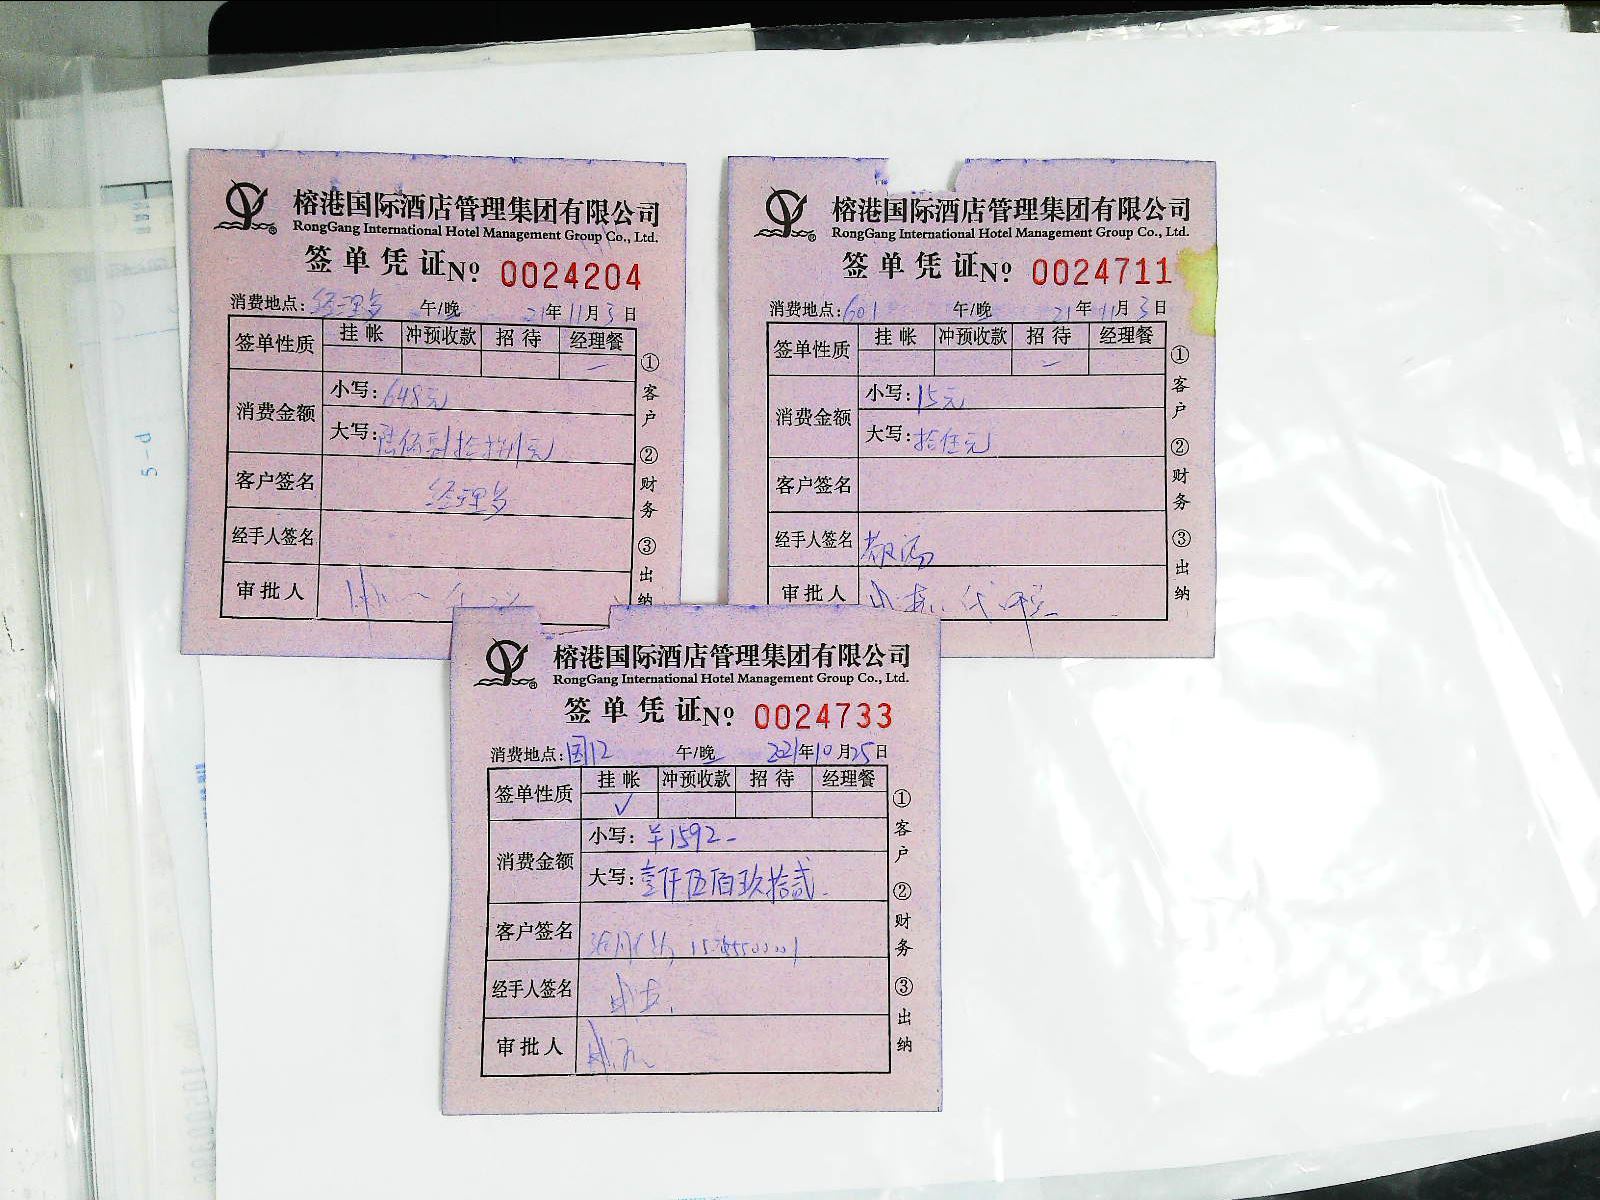 榕港国际酒店管理集团有限公司
RongGang International Hotel Management Group Co., Ltd.
签单凭证№ 0024204
消费地点:经理岁 午/晚 21年11月3日
签单性质 挂帐 冲预收款 招待 经理餐
消费金额 小写:648元
大写:陆佰肆拾捌元
客户签名 经理岁
经手人签名
审批人
①客户 ②财务 ③出纳
榕港国际酒店管理集团有限公司
RongGang International Hotel Management Group Co., Ltd.
签单凭证№ 0024711
消费地点:601 午/晚 21年11月3日
签单性质 挂帐 冲预收款 招待 经理餐
消费金额 小写:15元
大写:拾伍元
客户签名
经手人签名
审批人
①客户 ②财务 ③出纳
榕港国际酒店管理集团有限公司
RongGang International Hotel Management Group Co., Ltd.
签单凭证№ 0024733
消费地点:国12 午/晚 2021年10月25日
签单性质 挂帐 冲预收款 招待 经理餐
✓
消费金额 小写:¥1592-
大写:壹仟伍佰玖拾贰
客户签名
经手人签名
审批人
①客户 ②财务 ③出纳
5-d